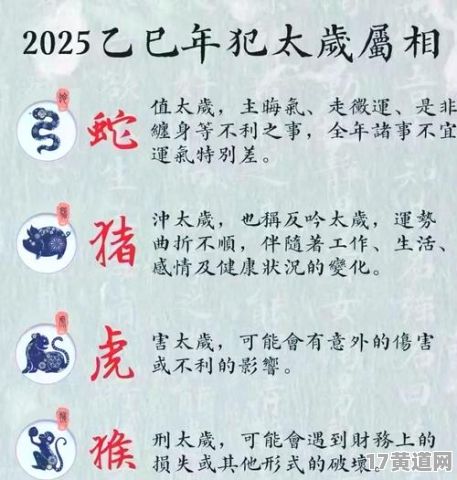 2025乙巳年犯太歲屬相
蛇
值太歲，主晦氣、走黴運、是非
纏身等不利之事，全年諸事不宜
運氣特別差。
猪
沖太歲，也稱反吟太歲，運勢
曲折不順，伴隨著工作、生活、
感情及健康狀況的變化。
虎
害太歲，可能會有意外的傷害
或不利的影響。
猴
刑太歲，可能會遇到財務上的
損失或其他形式的破壞。
17黄道网